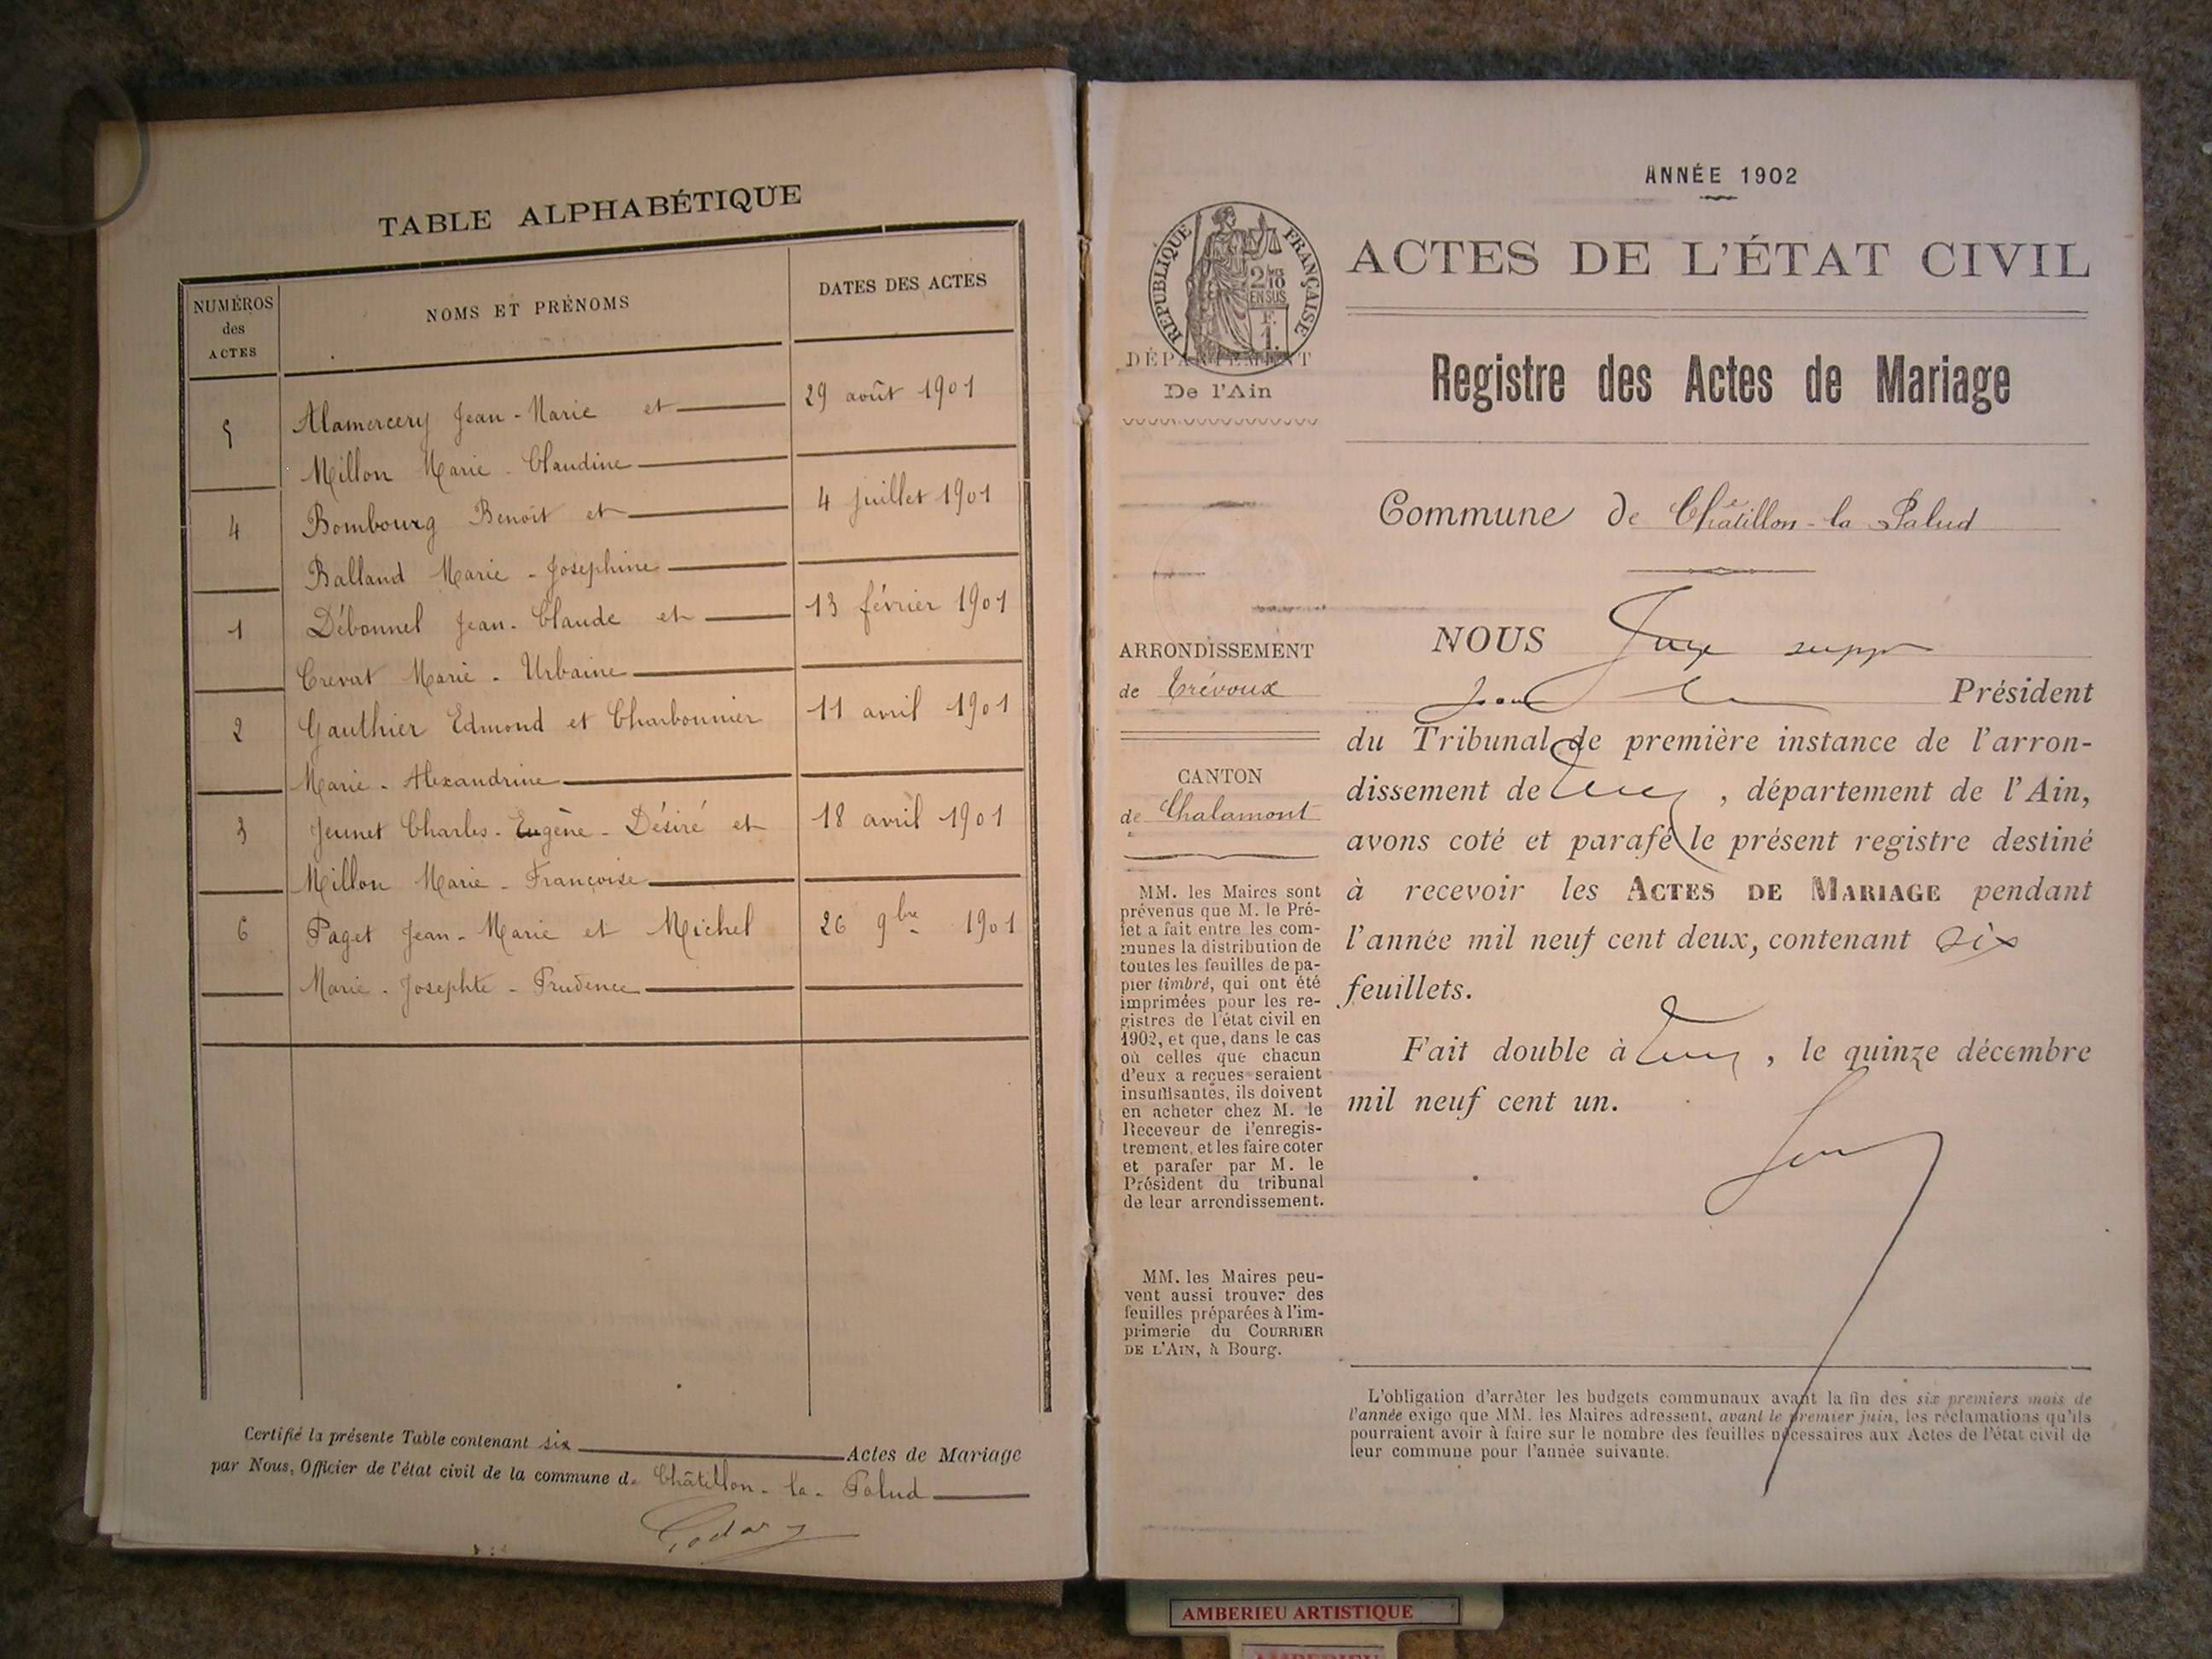 TABLE ALPHABÉTIQUE
NUMÉROS des ACTES
NOMS ET PRÉNOMS
DATES DES ACTES
5 Alamercery Jean-Marie et 29 août 1901
Millon Marie-Claudine
4 Bombourg Benoît et 4 juillet 1901
Balland Marie-Joséphine
1 Débonnel Jean-Claude et 13 février 1901
Crevat Marie-Urbaine
2 Gauthier Edmond et Charbonnier 11 avril 1901
Marie-Alexandrine
3 Jeunet Charles-Eugène-Désiré et 18 avril 1901
Millon Marie-Françoise
6 Paget Jean-Marie et Michel 26 9bre 1901
Marie-Josephte-Prudence
Certifié la présente Table contenant six Actes de Mariage
par Nous, Officier de l'état civil de la commune de Châtillon-la-Palud
ANNÉE 1902
RÉPUBLIQUE FRANÇAISE
2/10
EN SUS
F.
1.
DÉPARTEMENT
De l'Ain
ACTES DE L'ÉTAT CIVIL
Registre des Actes de Mariage
Commune de Châtillon-la Palud
ARRONDISSEMENT
de Trévoux
CANTON
de Chalamont
MM. les Maires sont
prévenus que M. le Pré-
fet a fait entre les com-
munes la distribution de
toutes les feuilles de pa-
pier timbré, qui ont été
imprimées pour les re-
gistres de l'état civil en
1902, et que, dans le cas
où celles que chacun
d'eux a reçues seraient
insuffisantes, ils doivent
en acheter chez M. le
Receveur de l'enregis-
trement, et les faire coter
et parafer par M. le
Président du tribunal
de leur arrondissement.
MM. les Maires peu-
vent aussi trouver des
feuilles préparées à l'im-
primerie du COURRIER
DE L'AIN, à Bourg.
NOUS Juge supp
Président
du Tribunal de première instance de l'arron-
dissement de , département de l'Ain,
avons coté et parafé le présent registre destiné
à recevoir les ACTES DE MARIAGE pendant
l'année mil neuf cent deux, contenant six
feuillets.
Fait double à , le quinze décembre
mil neuf cent un.
L'obligation d'arrêter les budgets communaux avant la fin des six premiers mois de
l'année exige que MM. les Maires adressent, avant le premier juin, les réclamations qu'ils
pourraient avoir à faire sur le nombre des feuilles nécessaires aux Actes de l'état civil de
leur commune pour l'année suivante.
AMBERIEU ARTISTIQUE
AMBERIEU